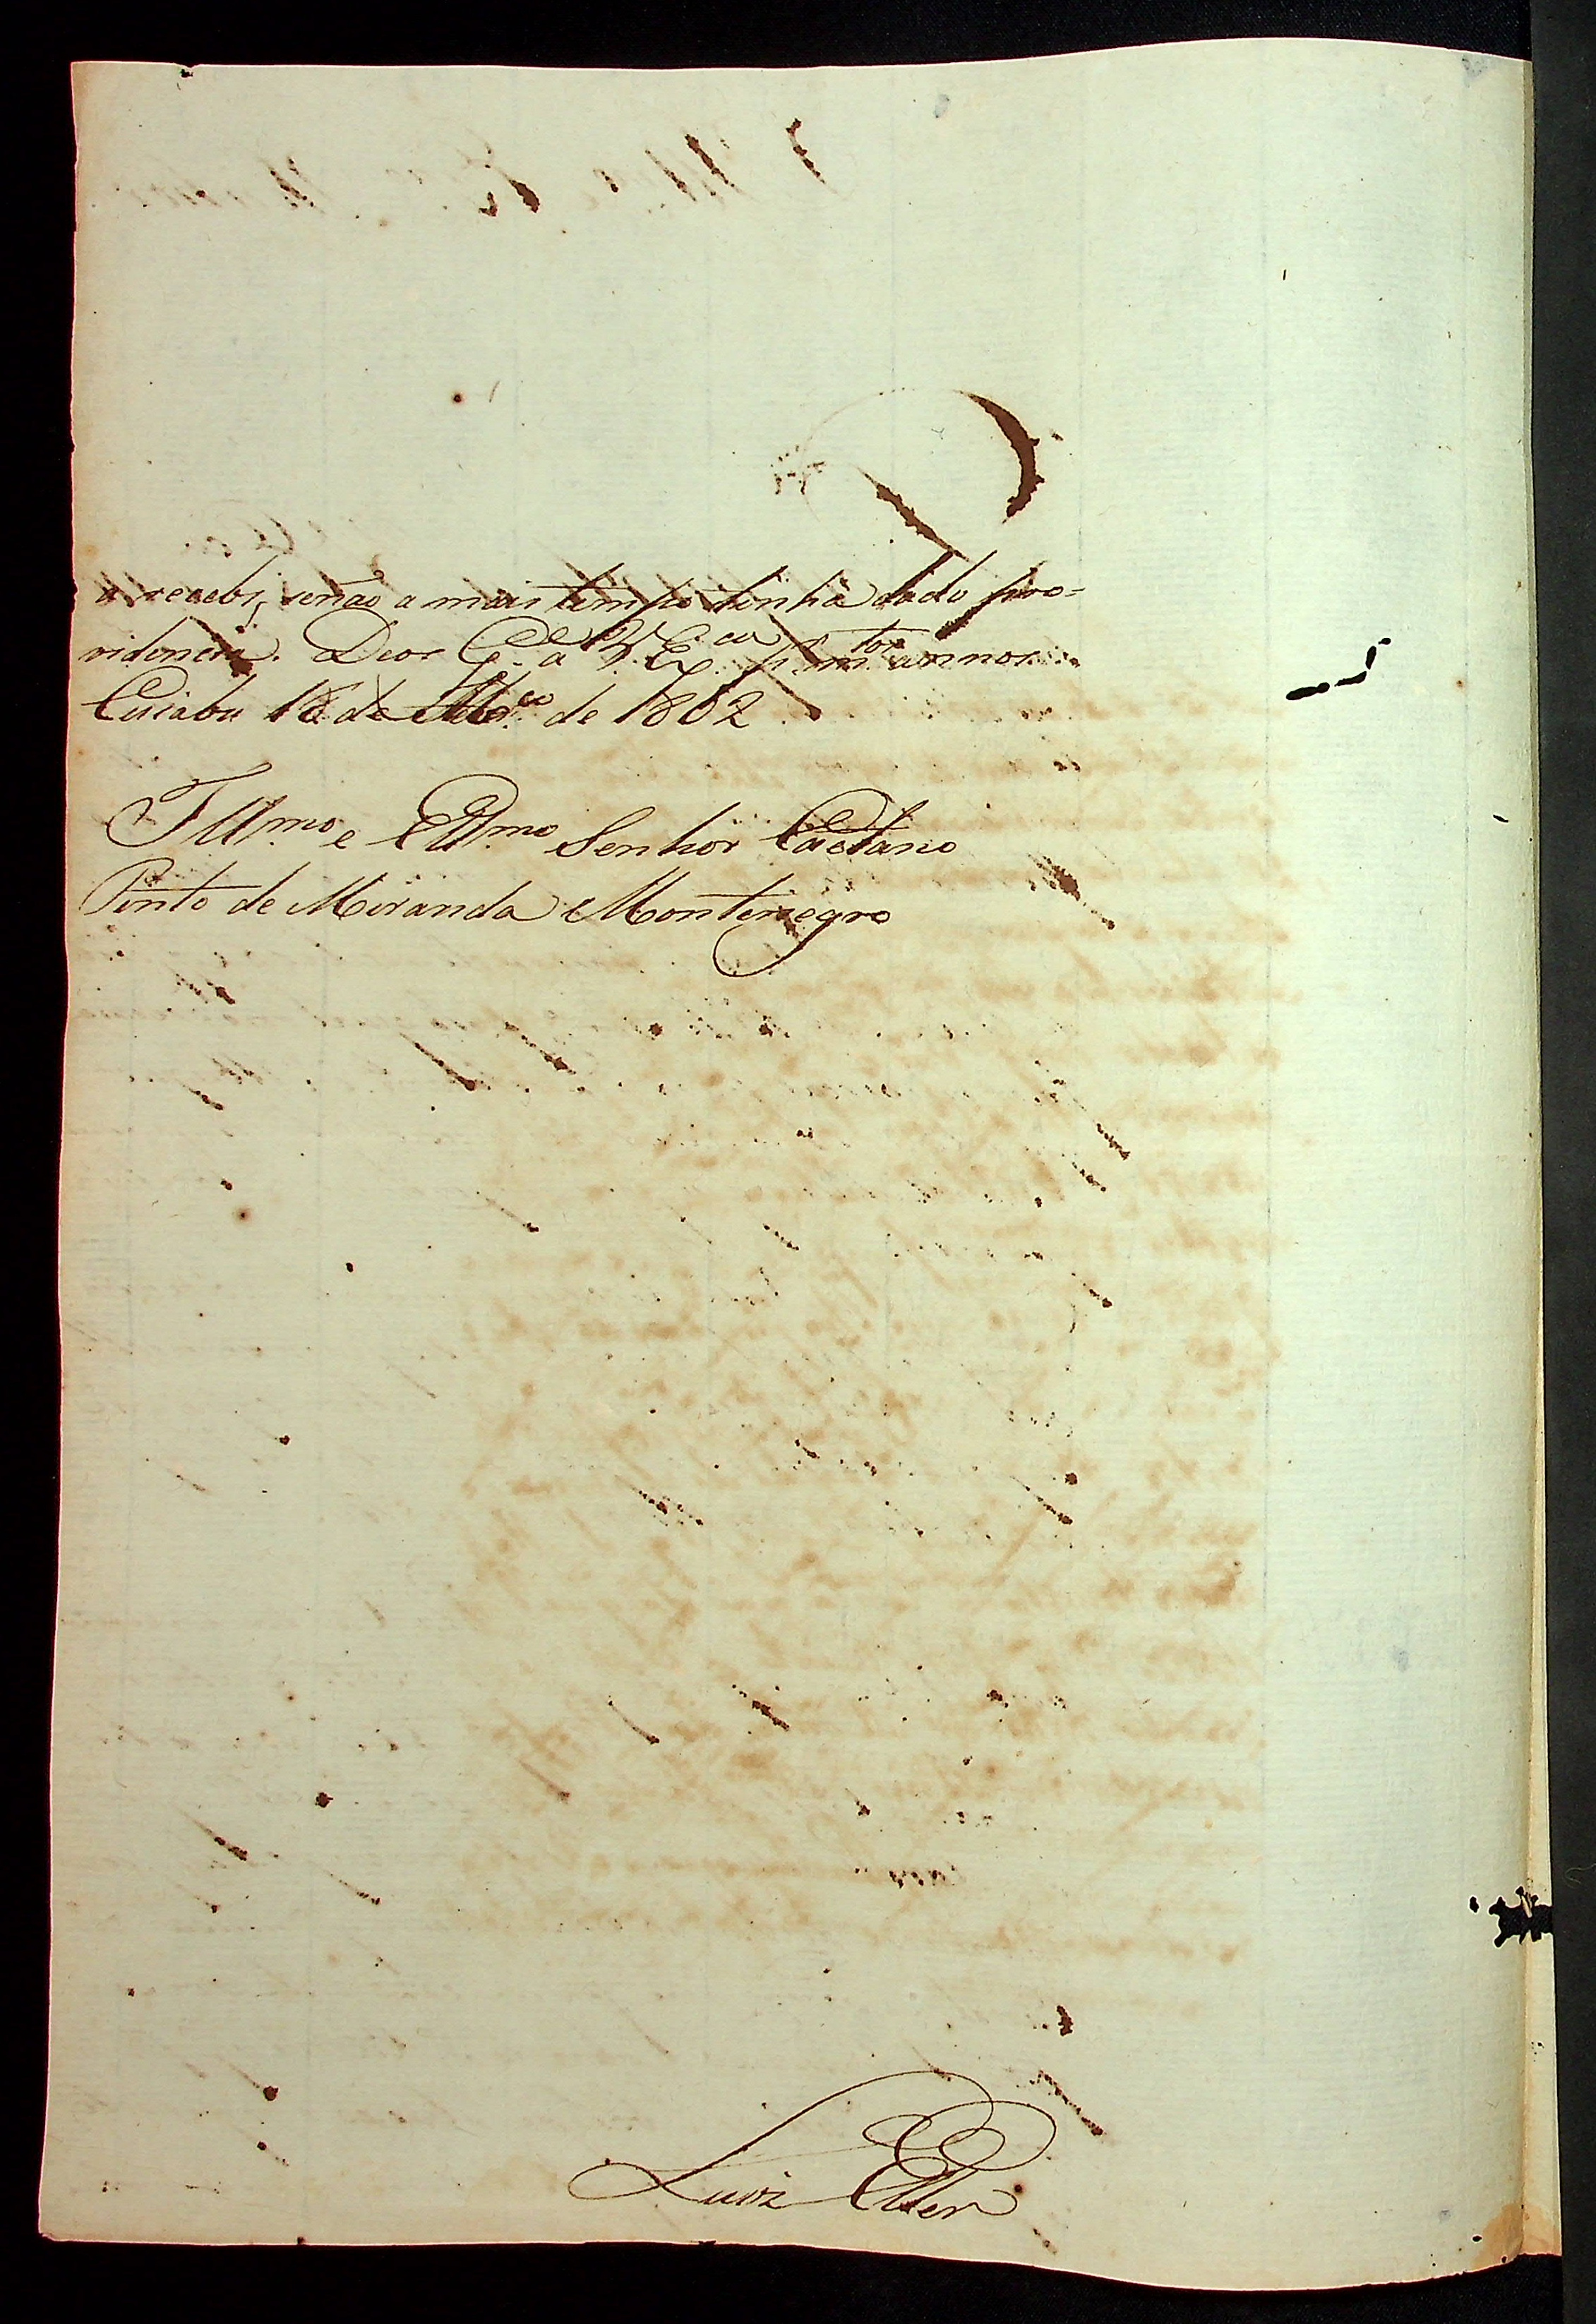 a recebi, senão a mais tempo tinha dado pro=
videncia. Deos G.de a V. Ex.cia m.tos annos
Cuiabá 18 de de 1802
Ill.mo e Ex.mo Senhor Caetano
Pinto de Miranda Montenegro
Luiz